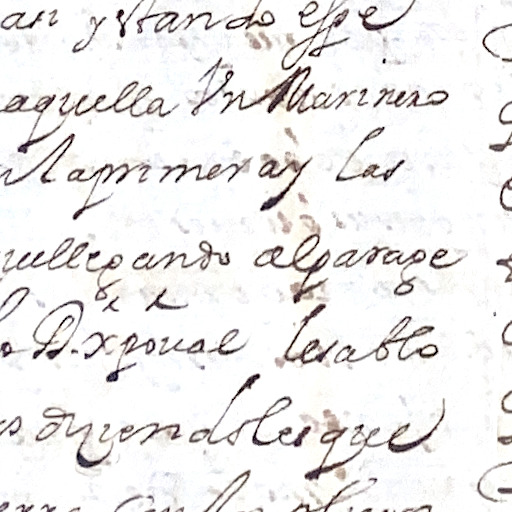 an y stando espe
aquella Vn Marinero
laprimera y las
quellegando alparage
D. xpoual lesablo
diziendoles que